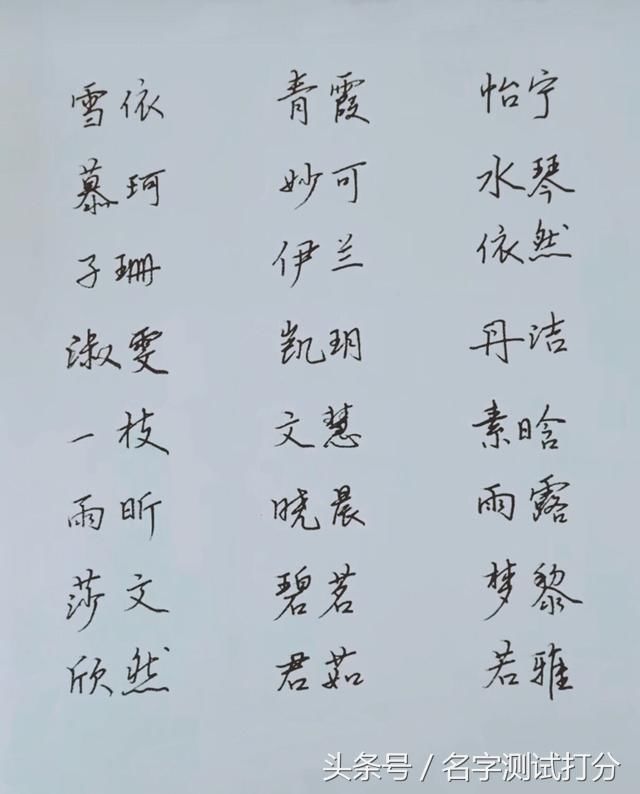 雪依 青霞 怡宁
慕珂 妙可 水琴
子珊 伊兰 依然
淑雯 凯玥 丹洁
一枝 文慧 素晗
雨昕 晓晨 雨露
莎文 碧茗 梦黎
欣然 君茹 若雅
头条号 / 名字测试打分